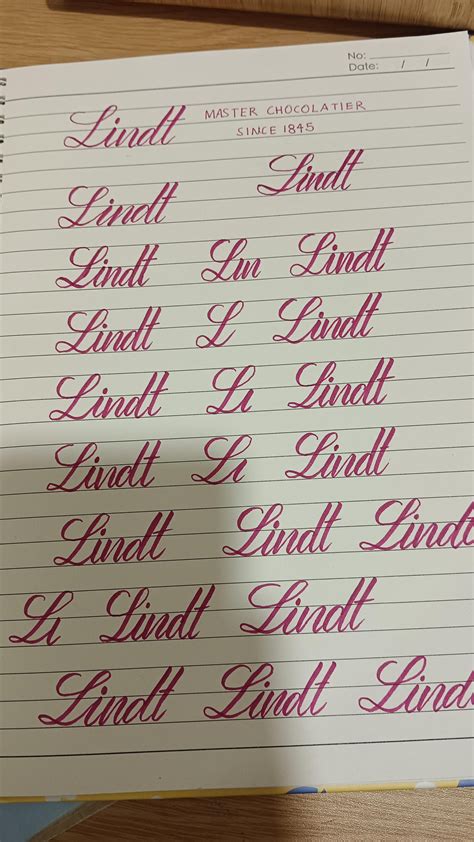 No:
Date: / /
Lindt MASTER CHOCOLATIER
SINCE 1845
Lindt Lindt
Lindt Lin Lindt
Lindt L Lindt
Lindt Li Lindt
Lindt Li Lindt
Lindt Lindt Lindt
Li Lindt Lindt
Lindt Lindt Lindt